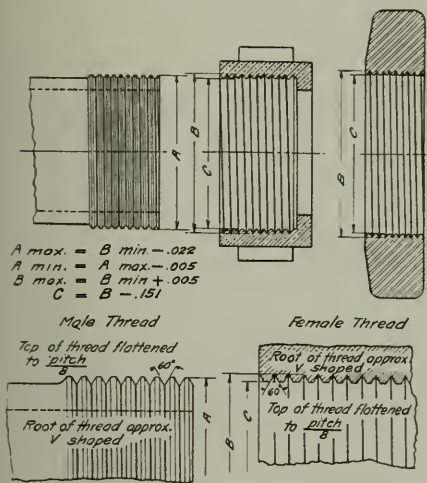 A
B
C
B
C
A max. = B min. -.022
A min. = A max. -.005
B max. = B min + .005
C = B -.151
Male Thread
Female Thread
Top of thread flattened
to pitch/8
60°
Root of thread approx.
V shaped
A
Root of thread approx.
V shaped
60°
Top of thread flattened
to pitch/8
B
C